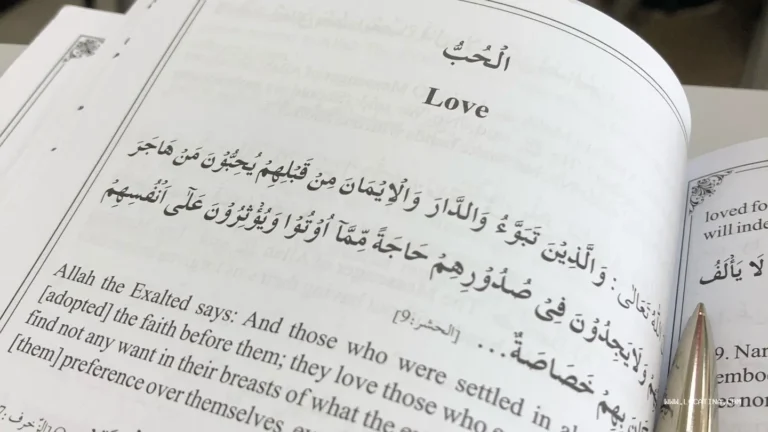 اَلْحُبُّ
Love
تَعَالٰى : وَالَّذِيْنَ تَبَوَّءُ وَالدَّارَ وَالْاِيْمَانَ مِنْ قَبْلِهِمْ يُحِبُّوْنَ مَنْ هَاجَرَ
وَلَا يَجِدُوْنَ فِىْ صُدُوْرِهِمْ حَاجَةً مِّمَّآ اُوْتُوْا وَيُؤْثِرُوْنَ عَلٰٓى اَنْفُسِهِمْ
بِهِمْ خَصَاصَةٌ... [الحشر:9]
Allah the Exalted says: And those who were settled in
[adopted] the faith before them; they love those who
find not any want in their breasts of what the
[them] preference over themselves,
loved
will
لَا يَأْلَفُ
9.